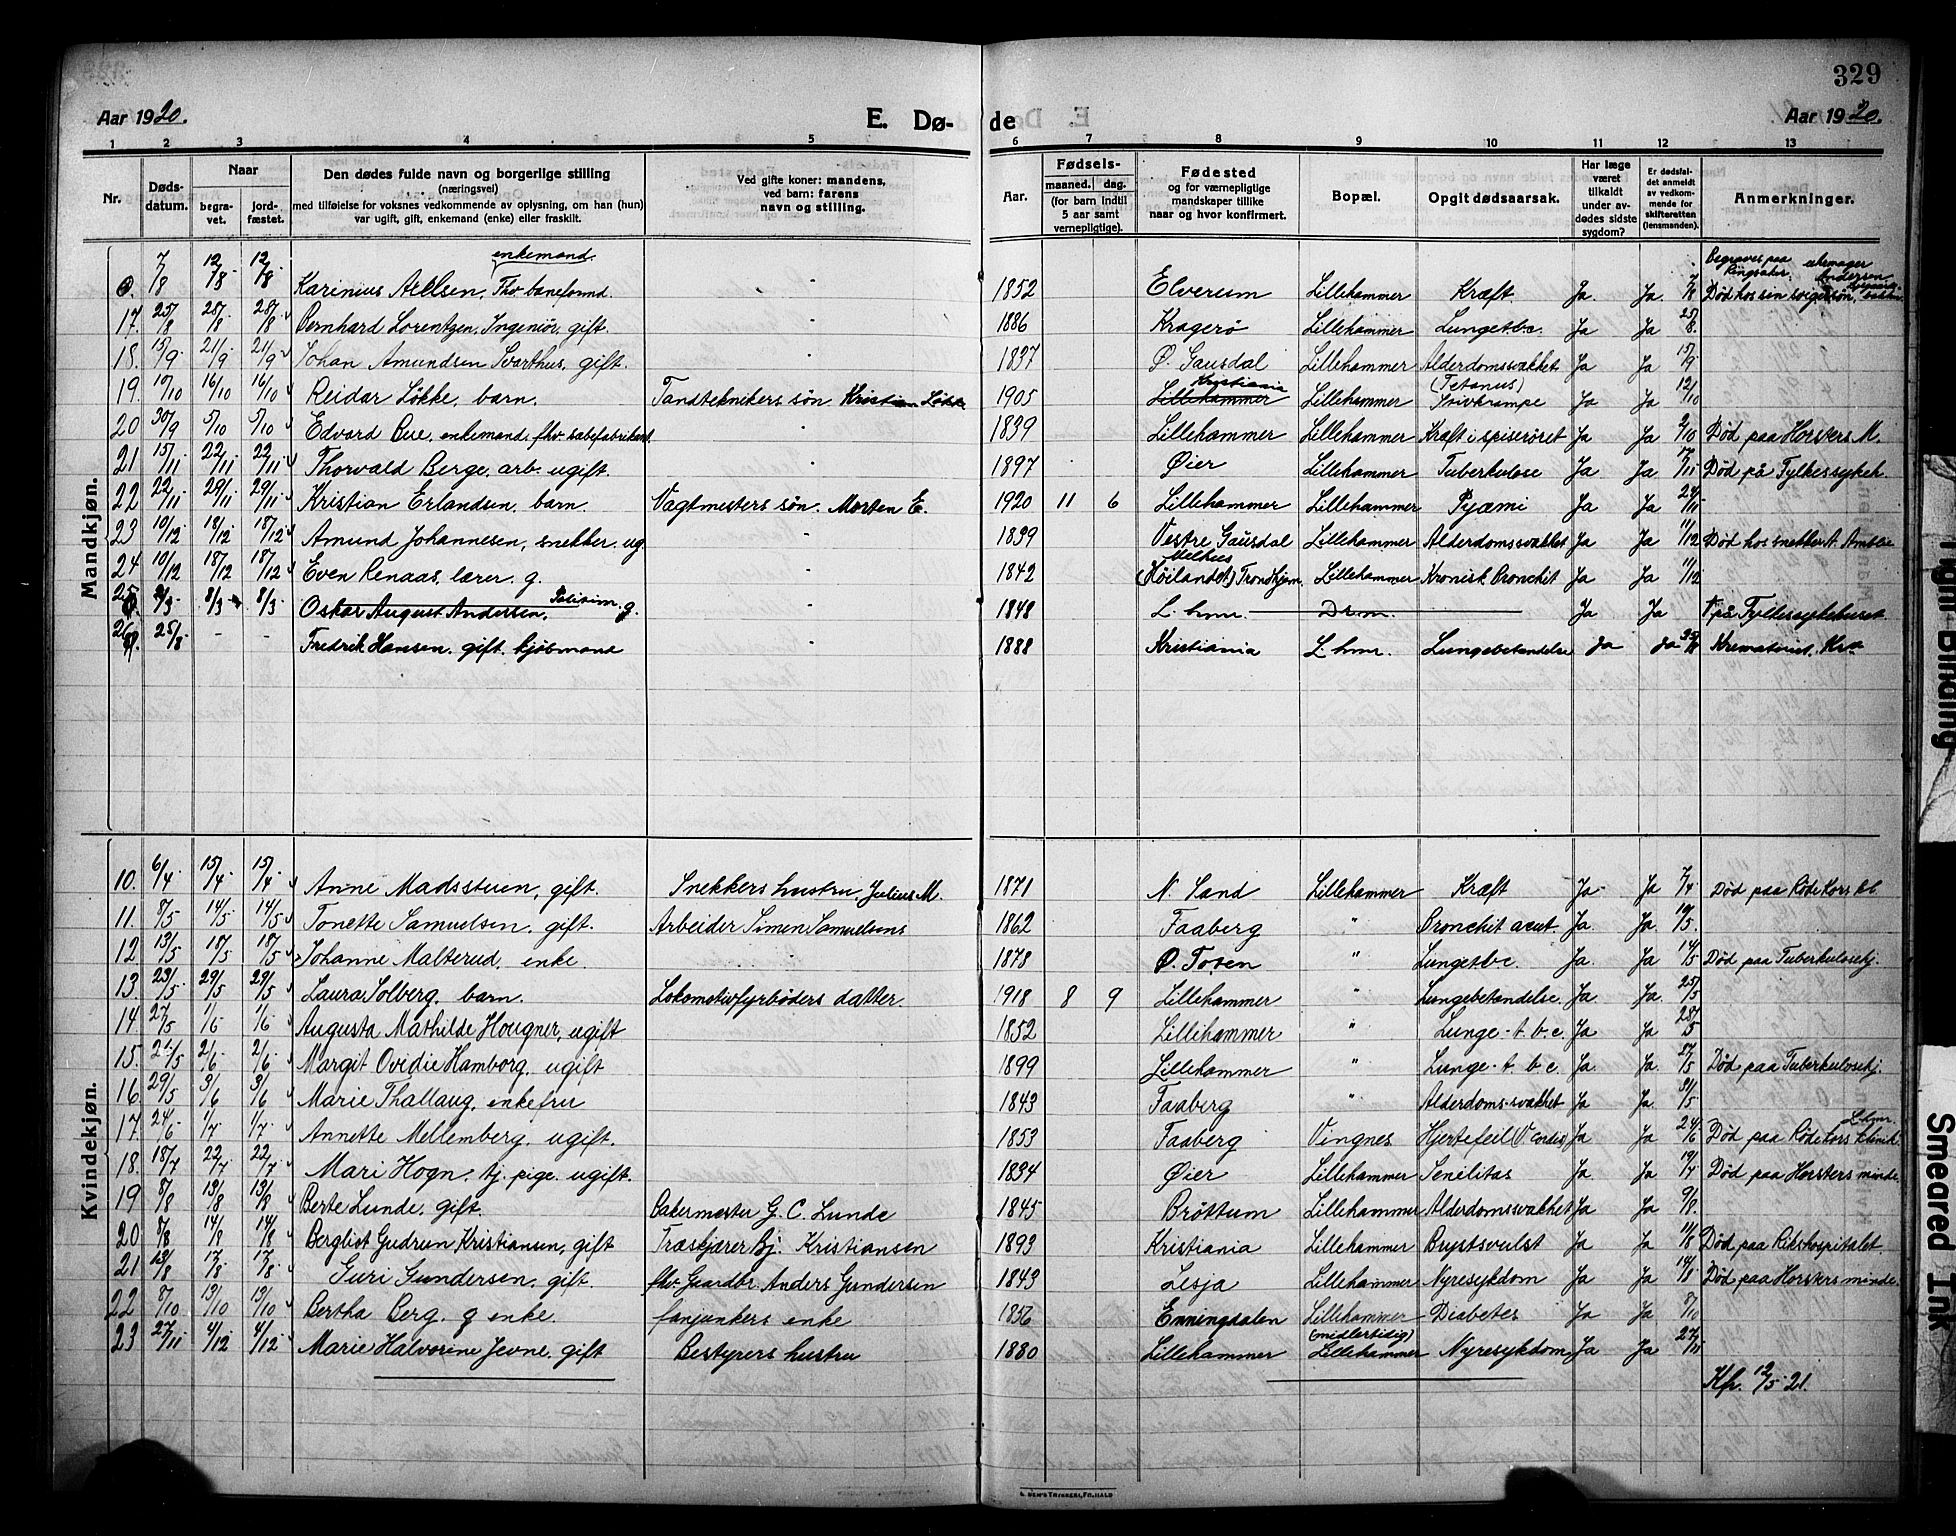 329
Aar 1920.
E. Dø-
de
Aar 1920.
1 2 3 4 5 6 7 8 9 10 11 12 13
Nr.
Døds-
datum.
Naar
begra-
vet.
jord-
fæstet.
Den dødes fulde navn og borgerlige stilling
(næringsvei)
med tilføielse for voksnes vedkommende av oplysning, om han (hun)
var ugift, gift, enkemand (enke) eller fraskilt.
Ved gifte koner: mandens,
ved barn: farens
navn og stilling.
Aar.
Fødsels-
maaned. dag.
(for barn indtil
5 aar samt
vernepligtige).
Fødested
og for værnepligtige
mandskaper tillike
naar og hvor konfirmert.
Bopæl.
Opgit dødsaarsak.
Har læge
været
tilkaldt
under av-
dødes sidste
sygdom?
Er dødsfal-
det anmeldt
av vedkom-
mende for
skifteretten
(lensmanden).
Anmerkninger.
Mandkjøn.
enkemand.
7/8 12/8 12/8 Karinius Fhv. baneformd. 1852 Elverum Lillehammer Kræft Ja. Ja. 7/8 Begraves paa Ringsaker. Død hos sin svigersøn,
17. 25/8 28/8 28/8 Bernhard Lorentzen, Ingeniør, gift. 1886 Kragerø Lillehammer Lungetbc. Ja Ja 25/8.
18. 15/9 21/9 21/9 Johan Amundsen Svarthus, gift. 1837 Ø. Gausdal Lillehammer Alderdomssvakhet Ja Ja 15/9
19. 10/10 16/10 16/10 Reidar Løkke, barn. Tandteknikers søn Kristian Løkke 1905 Lillehammer Kristiania Lillehammer (Tetanus) Stivkrampe Ja Ja 12/10
20 30/9 5/10 5/10 Edvard Bue, enkemand, fhv. sæbefabrikant. 1839 Lillehammer Lillehammer Kræft i spiserøret Ja Ja 2/10 Død paa Horsters M.
21 15/11 22/11 22/11 Thorvald Berge, arb. ugift. 1897 Øier Lillehammer Tuberkulose Ja Ja 17/11 Død på Fylkessykeh.
22 22/11 29/11 29/11 Kristian Erlandsen, barn Vagtmesters søn. Morten E. 1920 11 6 Lillehammer Lillehammer Pyæmi Ja Ja 24/11
23 10/12 18/12 18/12 Amund Johannesen, snekker. ug. 1839 Vestre Gausdal Lillehammer Alderdomssvakket Ja Ja 11/12 Død hos snekker A. Amble
24 10/12 18/12 18/12 Even Renaas, lærer. g. 1842 Melhus (Høilandet) Trondhjem. Lillehammer Kronisk Bronchit Ja Ja 11/12
25 8/3 8/3 Oskar August Andersen, Politim. g. 1848 L.hmr. Drm. Ja Ja på Fylkessykehuset
26 25/8 - - Fredrik Hansen, gift. kjøbmand 1888 Kristiania L.hmr. Lungebetændelse Ja Ja Krematoriet, Kra
Kvindekjøn.
10. 6/4 15/4 15/4 Anne Madsstuen, gift. Snekkers hustru, Julius M. 1871 N. Land Lillehammer Kræft Ja Ja 7/4 Død paa Røde Kors kl.
11. 8/5 14/5 14/5 Tonette Samuelsen, gift. Arbeider Simen Samuelsens 1862 Faaberg " Bronchit acut. Ja. Ja. 10/5.
12 13/5 18/5 18/5 Johanne Malterud, enke. 1878 Ø. Toten " Lungetbc. Ja. Ja 14/5 Død paa Tuberkulosehj.
13. 23/5 29/5 29/5 Laura Solberg, barn. Lokomotivfyrbøders datter. 1918 8 9 Lillehammer " Lungebetændelse. Ja Ja. 25/5
14 27/5 1/6 1/6 Augusta Mathilde Hougner, ugift 1852 Lillehammer " Lunge-t.b.c. Ja Ja 28/5
15. 26/5 2/6 2/6 Margit Ovidie Hamborg, ugift 1899 Lillehammer " Lunge-t.b.c. Ja. Ja. 27/5 Død paa Tuberkulosehj.
16 29/5 3/6 3/6 Marie Thallaug, enkefru 1843 Faaberg " Alderdoms-svakhet Ja Ja. 31/5
17. 24/6 1/7 1/7 Annette Mellemberg, ugift. 1853 Faaberg Vingnes Hjertefeil (V. Cordis) Ja Ja 24/6 Død paa Røde Kors klinik L.hmr.
18. 18/7 22/7 22/7 Mari Hogn, tj. pige. ugift. 1834 Øier Lillehammer Senilitas Ja Ja 19/7 Død paa Horsters minde.
19 8/8 13/8 13/8 Berte Lunde, gift. Bakermester G. C. Lunde 1845 Brøttum Lillehammer Alderdomssvakhet Ja Ja 9/8.
20 8/8 14/8 14/8 Bergliot Gudrun Kristiansen, gift Træskjærer Bj. Kristiansen 1893 Kristiania Lillehammer Brystsvulst Ja Ja 11/8 Død paa Rikshospitalet.
21 13/8 17/8 17/8 Guri Gundersen, gift. fhv. Gaardbr. Anders Gundersen 1843 Lesja Lillehammer Nyresykdom Ja Ja 14/8 Død paa Horsters minde.
22 8/10 13/10 13/10 Bertha Berg. g enke. fanjunkers enke 1856 Enningdalen Lillehammer (midlertidig) Diabetes Ja Ja 8/10
23 27/11 4/12 4/12 Marie Halvorine Jevne, gift Bestyrers hustru 1880 Lillehammer Lillehammer Nyresykdom Ja Ja 27/11
Kfr. 12/5 21.
Tight Binding
Smeared Ink